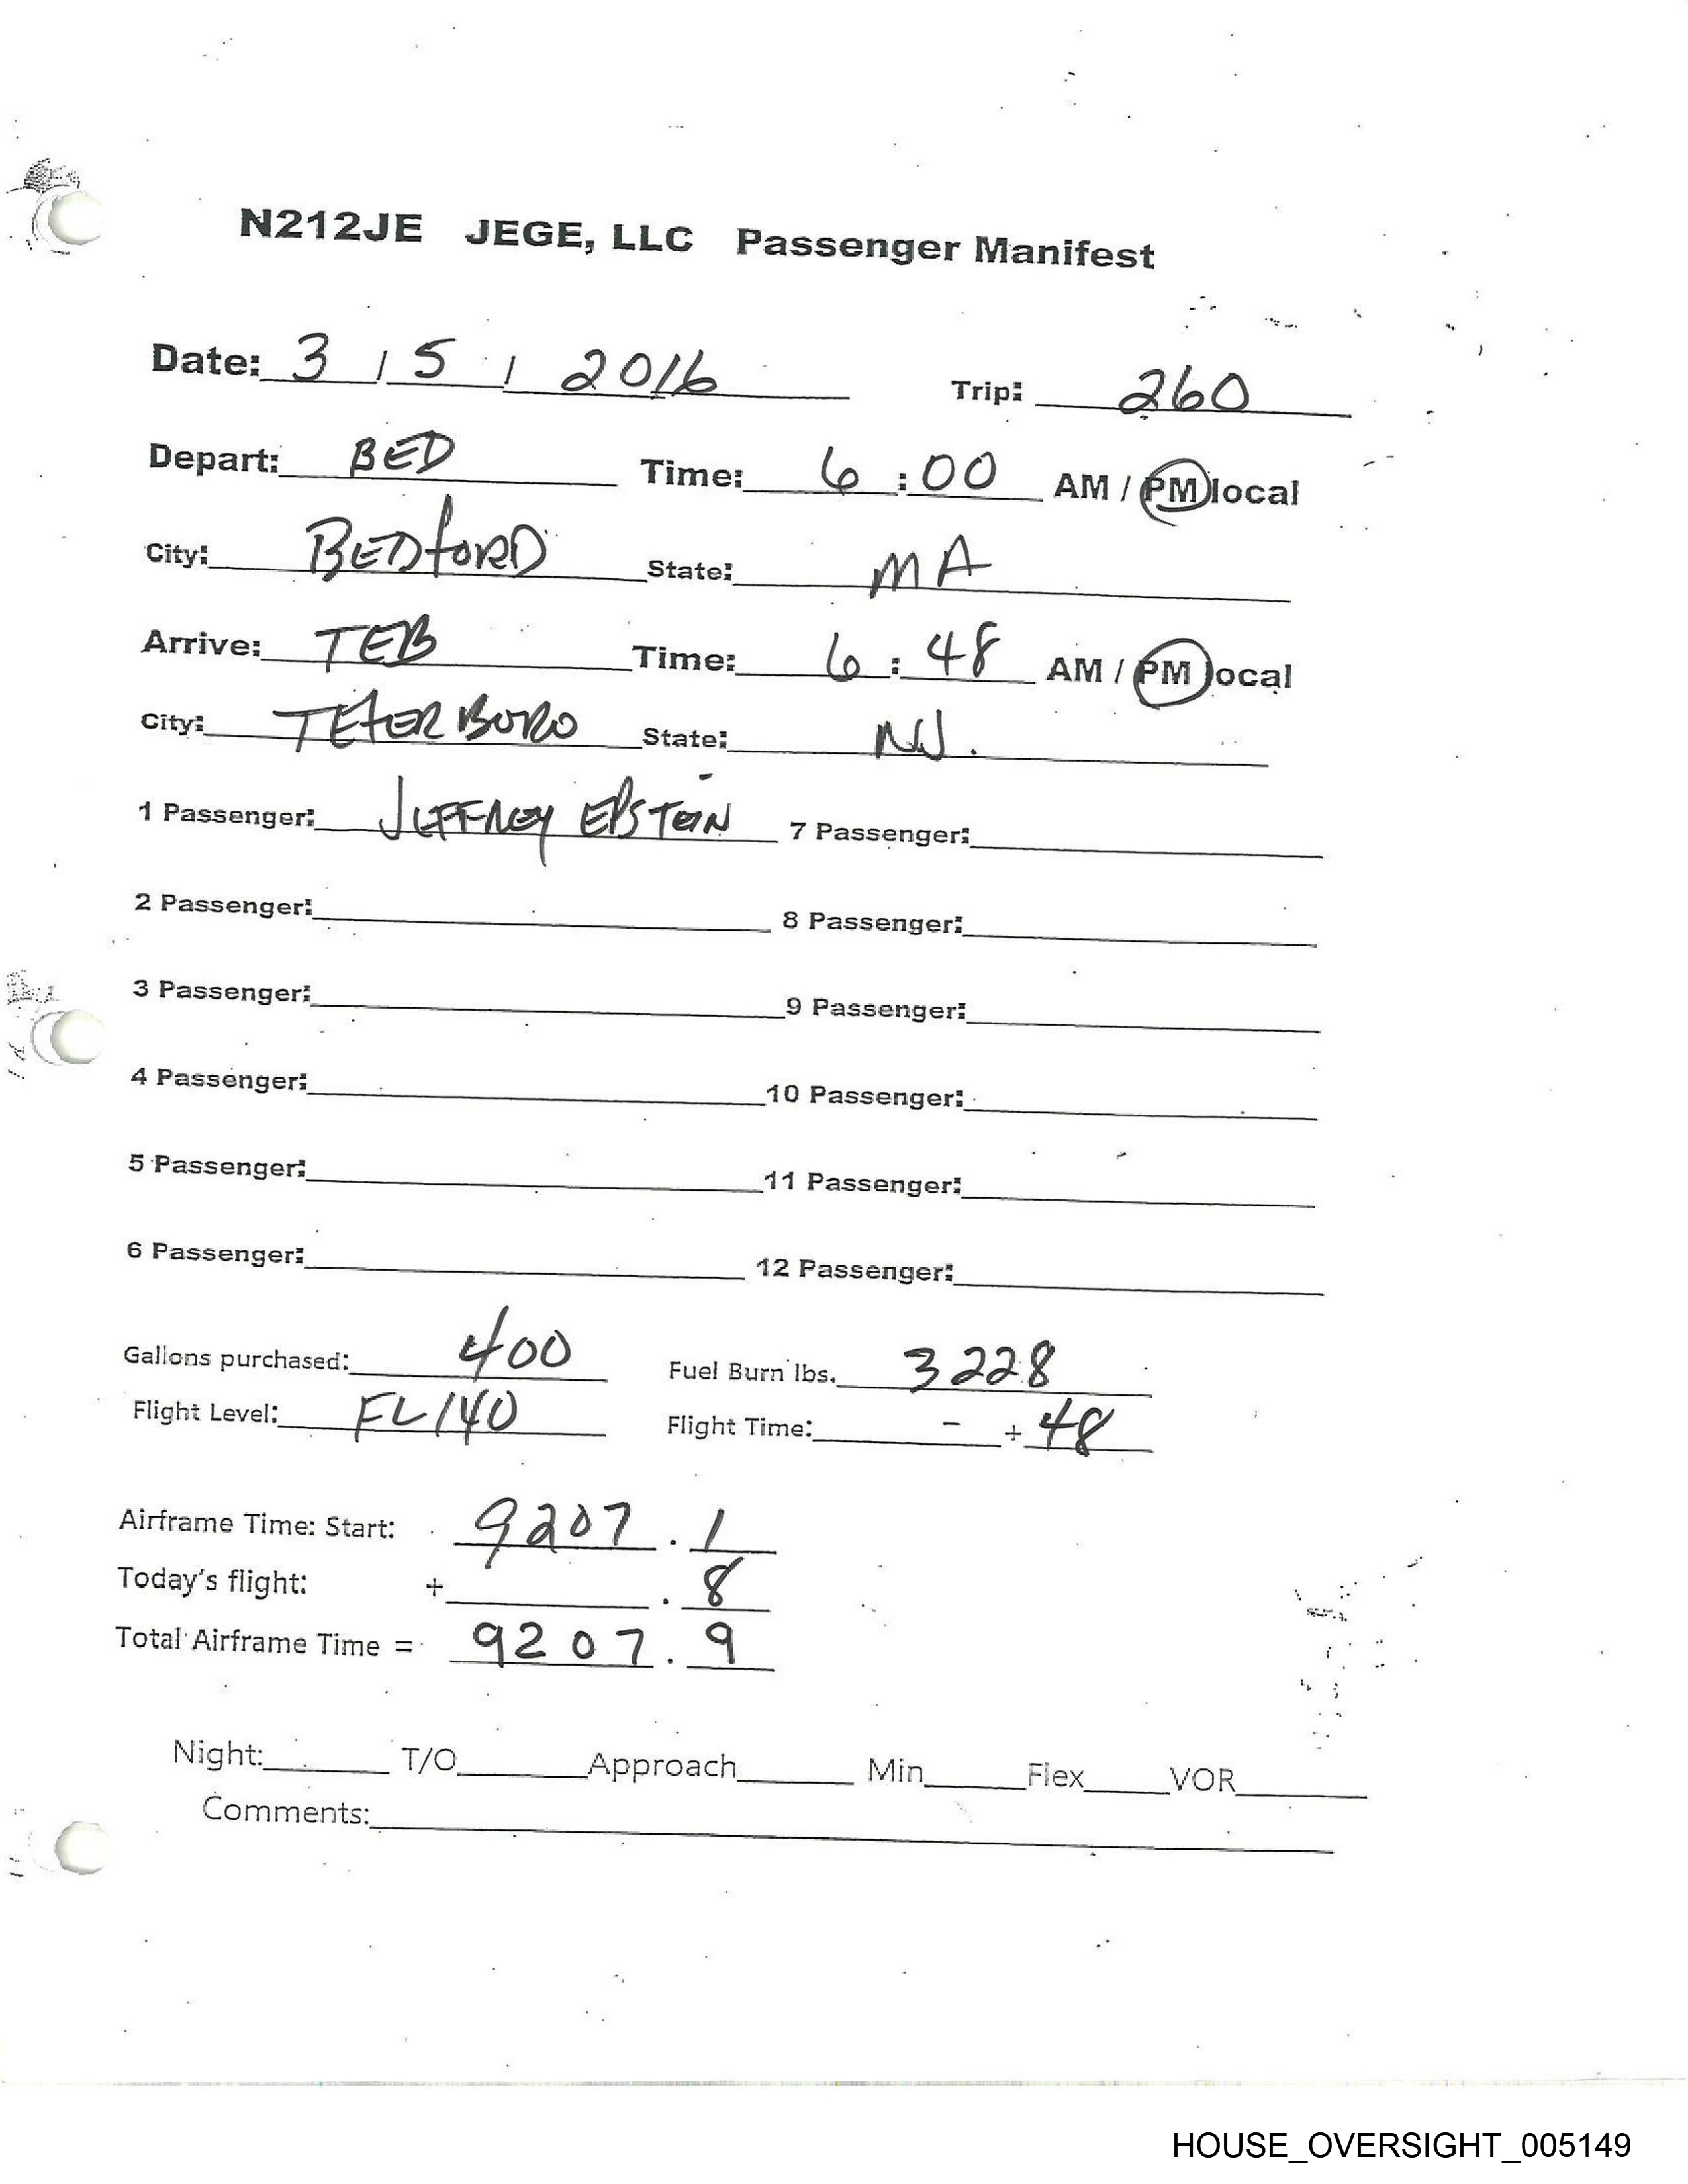 N212JE JEGE, LLC Passenger Manifest
Date: 3 / 5 / 2016 Trip: 260
Depart: BED Time: 6 : 00 AM / PM local
City: BEDFORD State: MA
Arrive: TEB Time: 6 : 48 AM / PM local
City: TETERBORO State: NJ.
1 Passenger: JEFFREY EPSTEIN 7 Passenger:
2 Passenger: 8 Passenger:
3 Passenger: 9 Passenger:
4 Passenger: 10 Passenger:
5 Passenger: 11 Passenger:
6 Passenger: 12 Passenger:
Gallons purchased: 400 Fuel Burn lbs. 3228
Flight Level: FL140 Flight Time: - + 48
Airframe Time: Start: 9207 . 1
Today's flight: + . 8
Total Airframe Time = 9207 . 9
Night: T/O Approach Min Flex VOR
Comments:
HOUSE_OVERSIGHT_005149